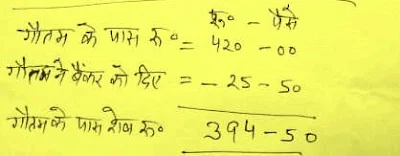 रु० - पैसे
गौतम के पास रु० = 420 - 00
गौतम ने बैंकर को दिए = - 25 - 50
गौतम के पास शेष रु० 394 - 50